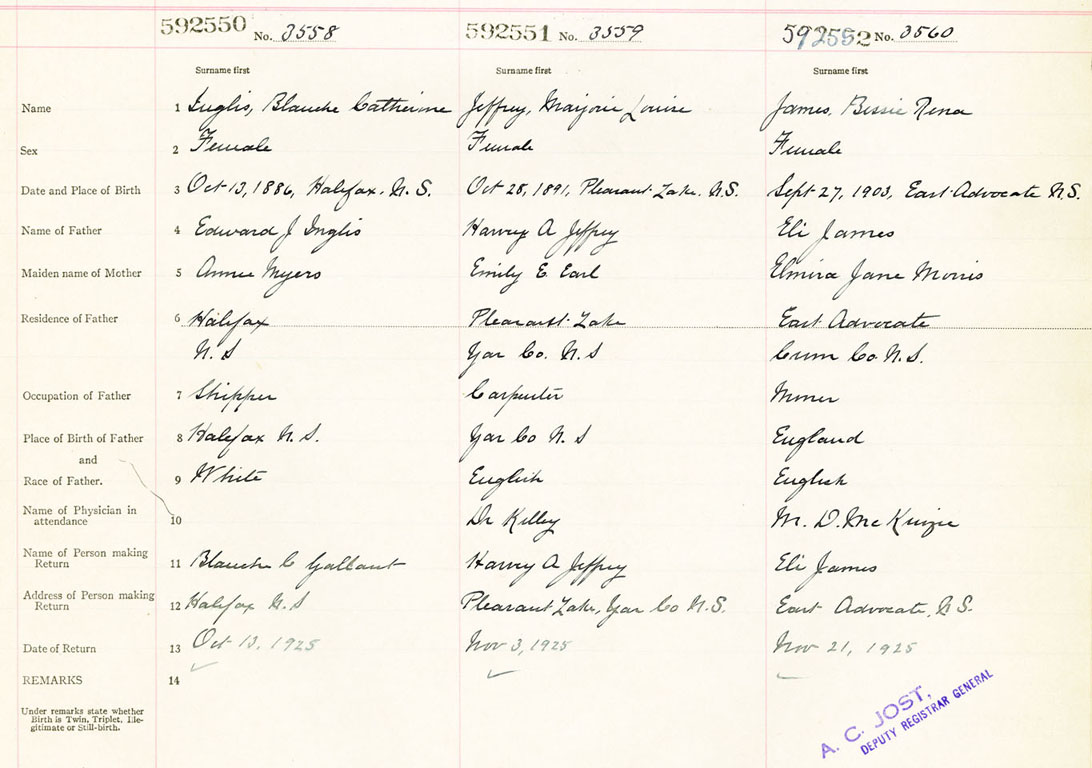 592550 No. 3558 592551 No. 3559 592552 No. 3560
Surname first Surname first Surname first
Name 1 Inglis, Blanche Catherine Jeffrey, Marjorie Louise James, Bessie Rena
Sex 2 Female Female Female
Date and Place of Birth 3 Oct 13, 1886, Halifax, N.S. Oct 28, 1891, Pleasant Lake. N.S. Sept 27, 1903, East Advocate N.S.
Name of Father 4 Edward J Inglis Harvey A Jeffrey Eli James
Maiden name of Mother 5 Annie Myers Emily E Earl Elmira Jane Morris
Residence of Father 6 Halifax Pleasant Lake East Advocate
N.S Yar Co. N.S Cum Co. N.S.
Occupation of Father 7 Shipper Carpenter Miner
Place of Birth of Father 8 Halifax N.S. Yar Co N S England
and
Race of Father. 9 White English English
Name of Physician in
attendance 10 Dr Killey M. D. McKinzie
Name of Person making
Return 11 Blanche C Gallant Harvey A Jeffrey Eli James
Address of Person making
Return 12 Halifax N.S Pleasant Lake, Yar Co N.S. East Advocate, N.S.
Date of Return 13 Oct 13, 1925 Nov 3, 1925 Nov 21, 1925
REMARKS 14
Under remarks state whether
Birth is Twin, Triplet, Ille-
gitimate or Still-birth.
A. C. JOST,
DEPUTY REGISTRAR GENERAL